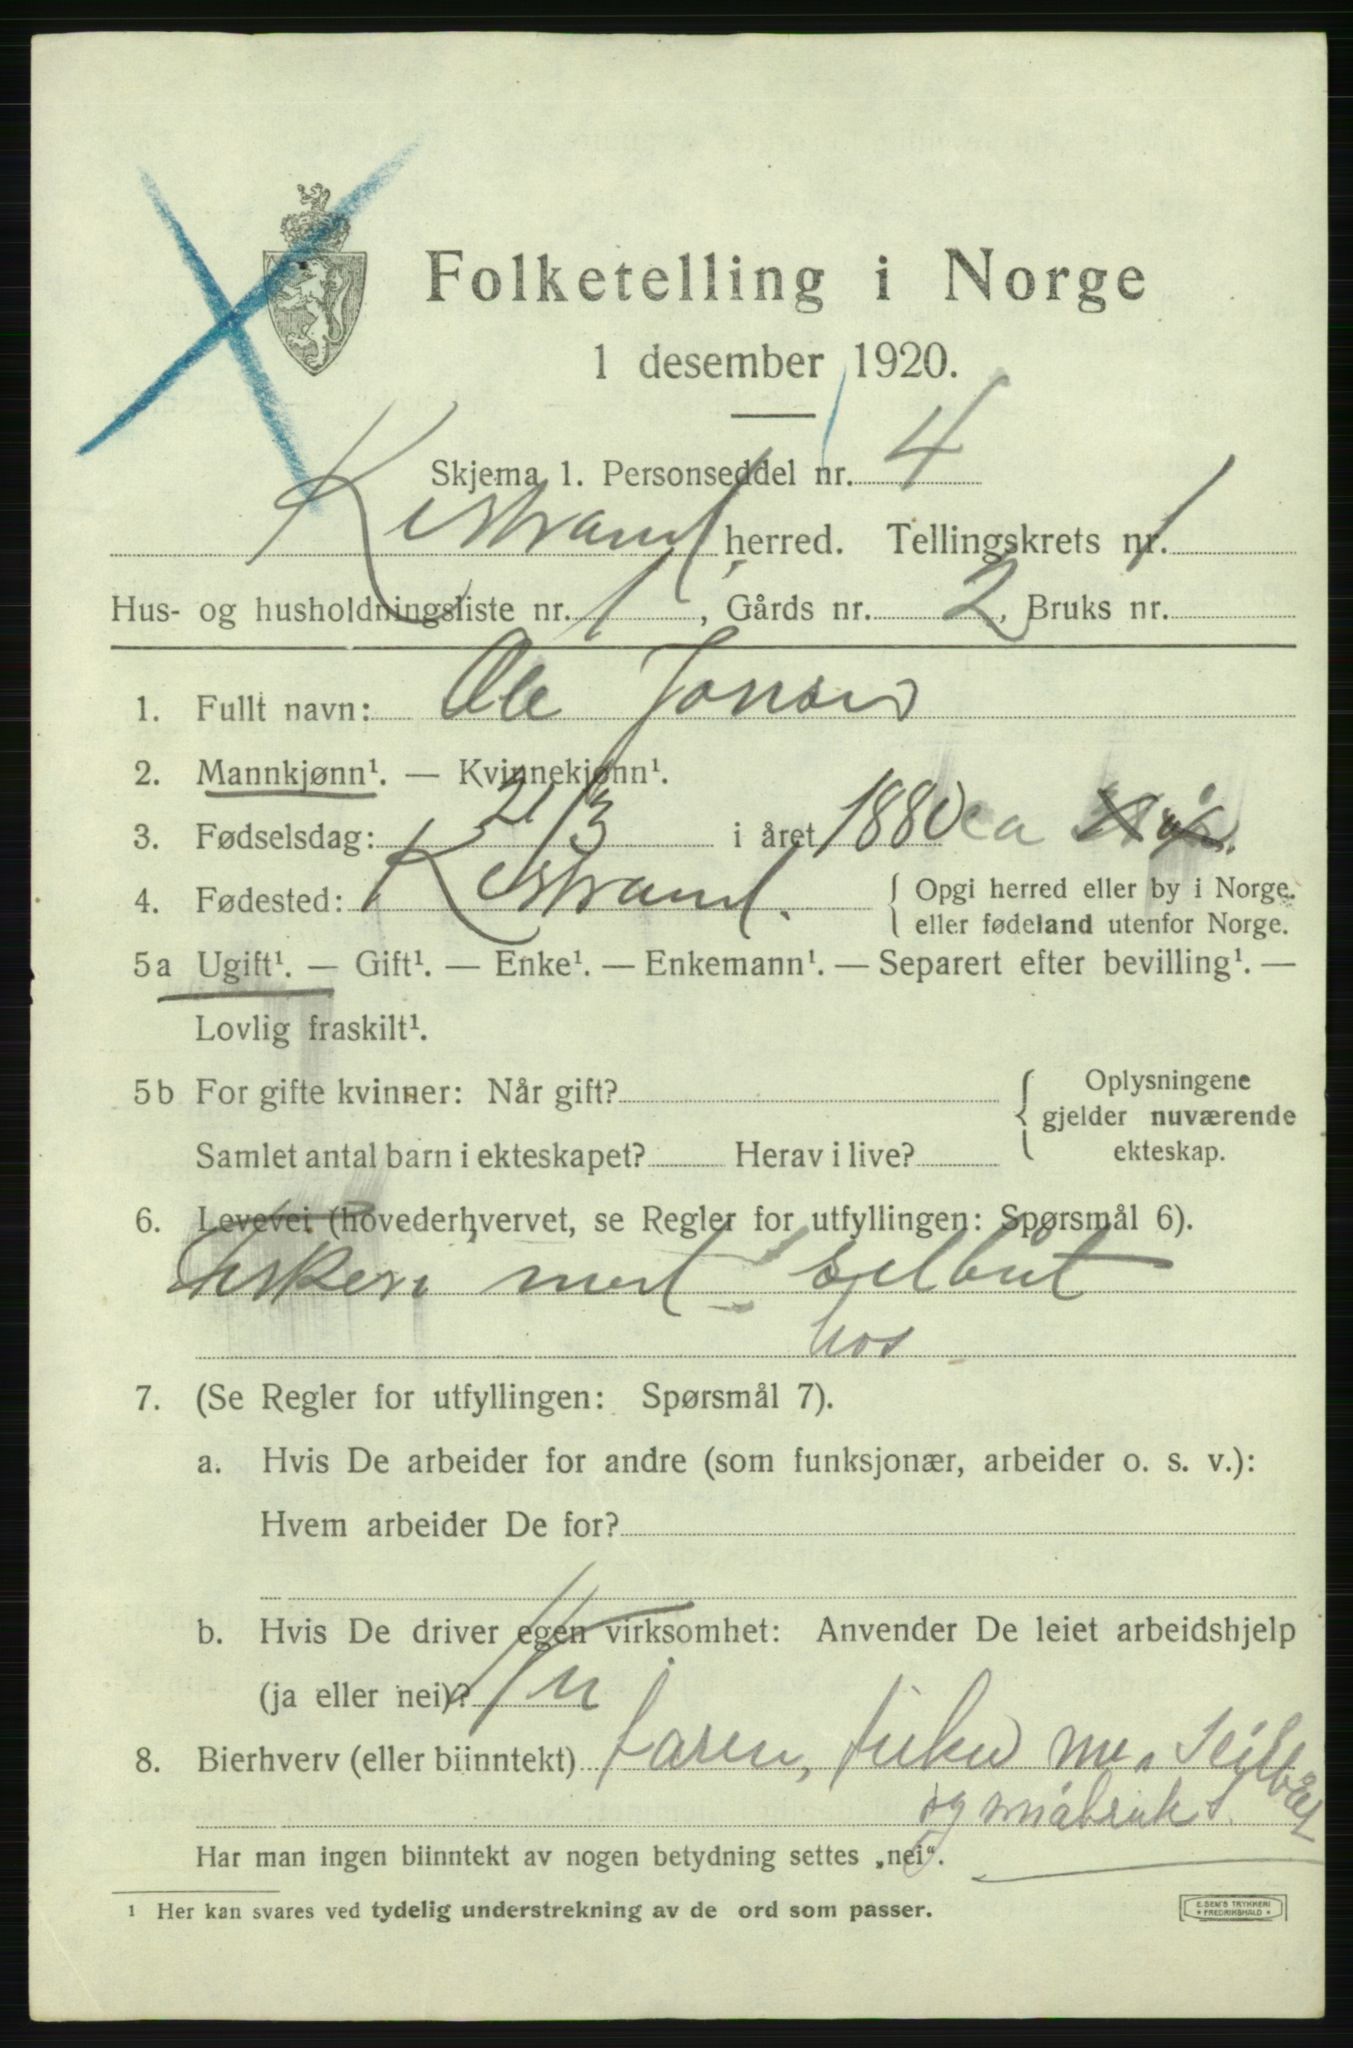 Folketelling i Norge
1 desember 1920.
Skjema 1. Personseddel nr. 4
Kistrand herred. Tellingskrets nr. 1
Hus- og husholdningsliste nr. 1, Gårds nr. 2, Bruks nr.
1. Fullt navn: Ole Jonsen
2. Mannkjønn¹. — Kvinnekjønn¹.
3. Fødselsdag: 21/3 i året 1880 ca
4. Fødested: Kistrand. { Opgi herred eller by i Norge.
eller fødeland utenfor Norge.
5a Ugift¹. — Gift¹. — Enke¹. — Enkemann¹. — Separert efter bevilling¹. —
Lovlig fraskilt¹.
5b For gifte kvinner: Når gift? { Oplysningene
gjelder nuværende
Samlet antal barn i ekteskapet? Herav i live? ekteskap.
6. Levevei (hovederhvervet, se Regler for utfyllingen: Spørsmål 6).
Fiskeri med seilbåt
hos
7. (Se Regler for utfyllingen: Spørsmål 7).
a. Hvis De arbeider for andre (som funksjonær, arbeider o. s. v.):
Hvem arbeider De for?
b. Hvis De driver egen virksomhet: Anvender De leiet arbeidshjelp
(ja eller nei)?
8. Bierhverv (eller biinntekt) faren, fisker m. Seilbåt
og småbruk
Har man ingen biinntekt av nogen betydning settes „nei“.
¹ Her kan svares ved tydelig understrekning av de ord som passer.
E. SEM'S TRYKKERI
* FREDRIKSHALD *